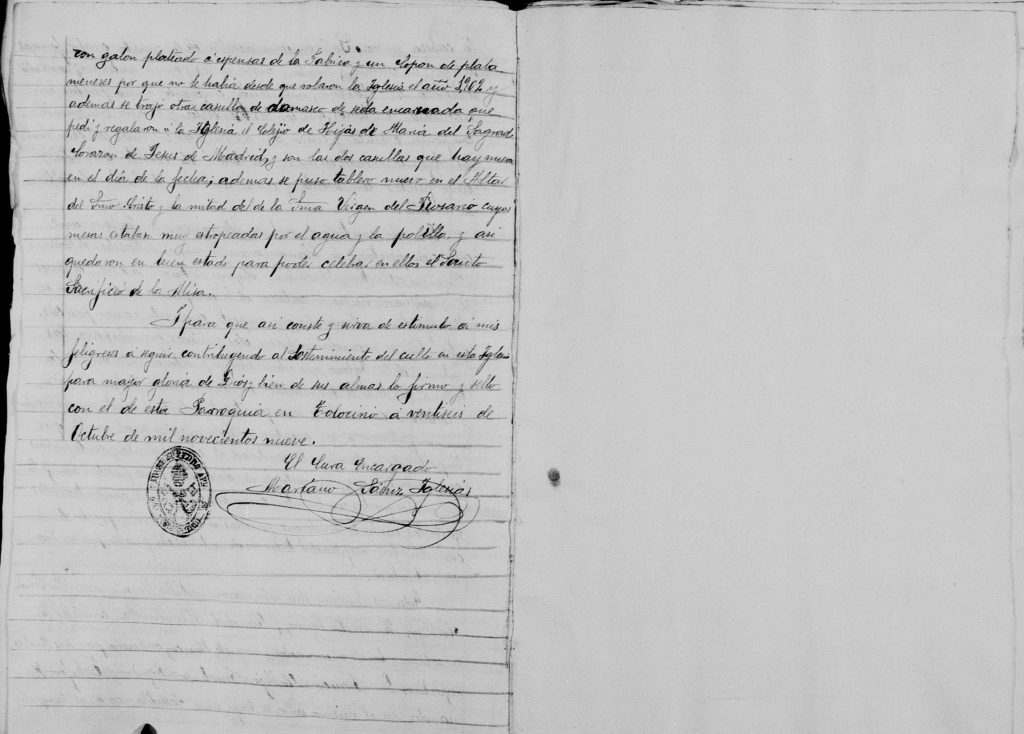 con galon plateado á espensas de la Fabrica y un Copon de plata
meneses por que no le habia desde que robaron la Iglesia el año 1902 y
ademas se trajo otra casulla de damasco de seda encarnada que
pedi y regalaron á la Iglesia el Colegio de Hijas de Maria del Sagrado
Corazon de Jesus de Madrid, y son las dos casullas que hay nuevas
en el dia de la fecha; ademas se puso tablero nuevo en el Altar
del Smo Cristo y la mitad del de la Sma Virgen del Rosario cuyas
mesas estaban muy estropeadas por el agua y la polilla y asi
quedaron en buen estado para poder celebrar en ellos el Santo
Sacrificio de la Misa.
Y para que asi conste y sirva de estimulo á mis
feligreses á seguir contribuyendo al sostenimiento del culto en esta Iglesia
para mayor gloria de Dios y bien de sus almas lo firmo y sello
con el de esta Parroquia en Tolocirio á ventiseis de
Octubre de mil novecientos nueve.
El Cura Encargado
Mariano Iglesias